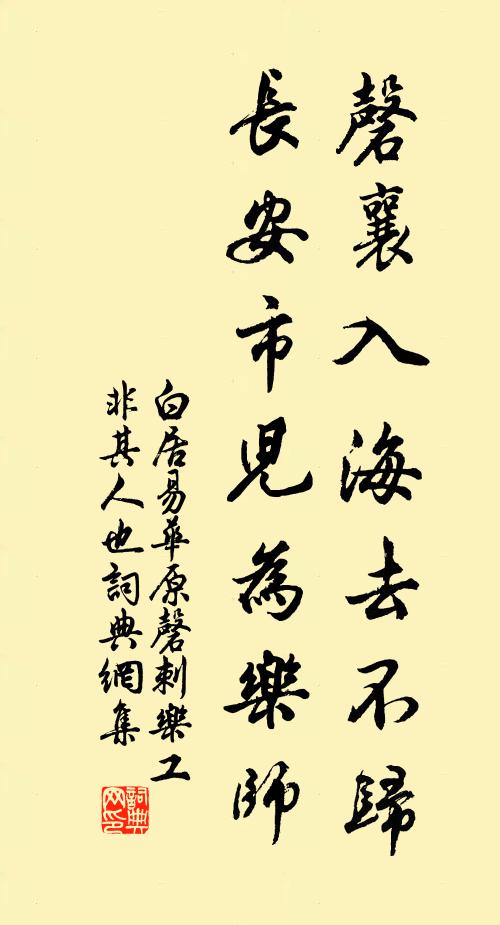 磬襄入海去不歸
長安市児為樂師
白居易華原磬刺樂工
非其人也詞典網集
詞典
网印